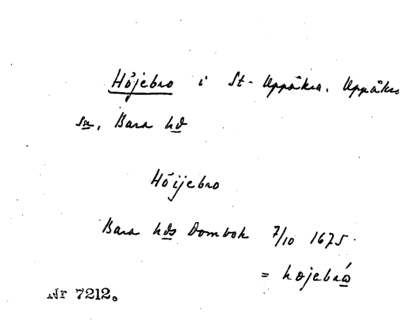 Höjebro i St. Uppåkra. Uppåkra
sn, Bara hd
Höijebro
Bara hds Dombok 7/10 1675.
= höjebrú
Nr 7212.